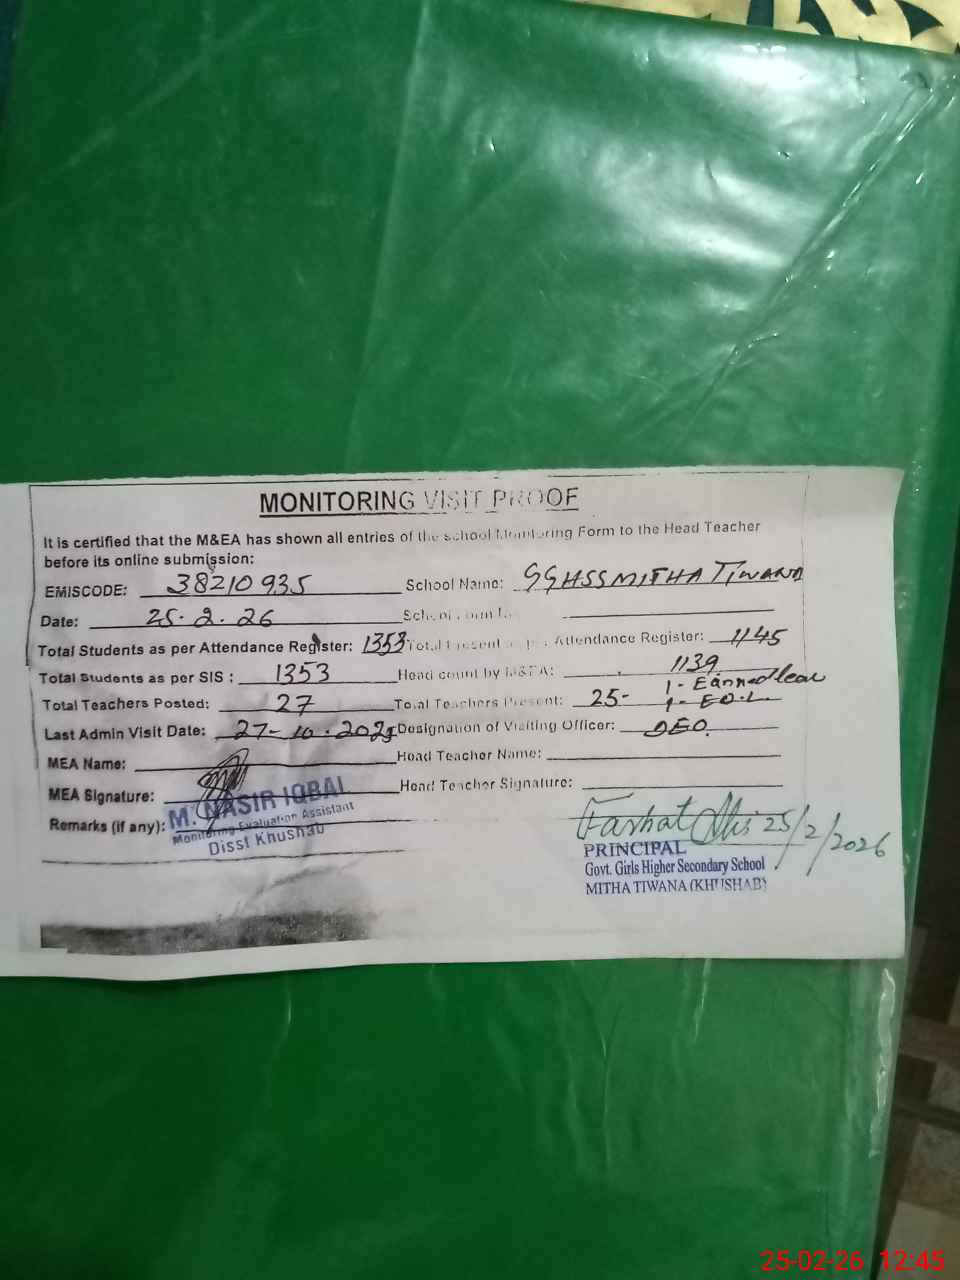 MONITORING VISIT PROOF
It is certified that the M&EA has shown all entries of the school Monitoring Form to the Head Teacher
before its online submission:
EMISCODE: 38210935 School Name: GGHSS MITHA TIWANA
Date: 25.2.26 School
Total Students as per Attendance Register: 1353 Total Present as per Attendance Register: 1145
Total Students as per SIS: 1353 Head count by M&EA: 1139
Total Teachers Posted: 27 Total Teachers Present: 25- 1- Earned leav
1- E.O.L
Last Admin Visit Date: 27-10.2025 Designation of Visiting Officer: DEO.
MEA Name: Head Teacher Name:
MEA Signature: Head Teacher Signature:
Remarks (if any):
M. NASIR IQBAL
Monitoring Evaluation Assistant
Disst Khushab
Farhat 25/2/2026
PRINCIPAL
Govt. Girls Higher Secondary School
MITHA TIWANA (KHUSHAB)
25-02-26 12:45